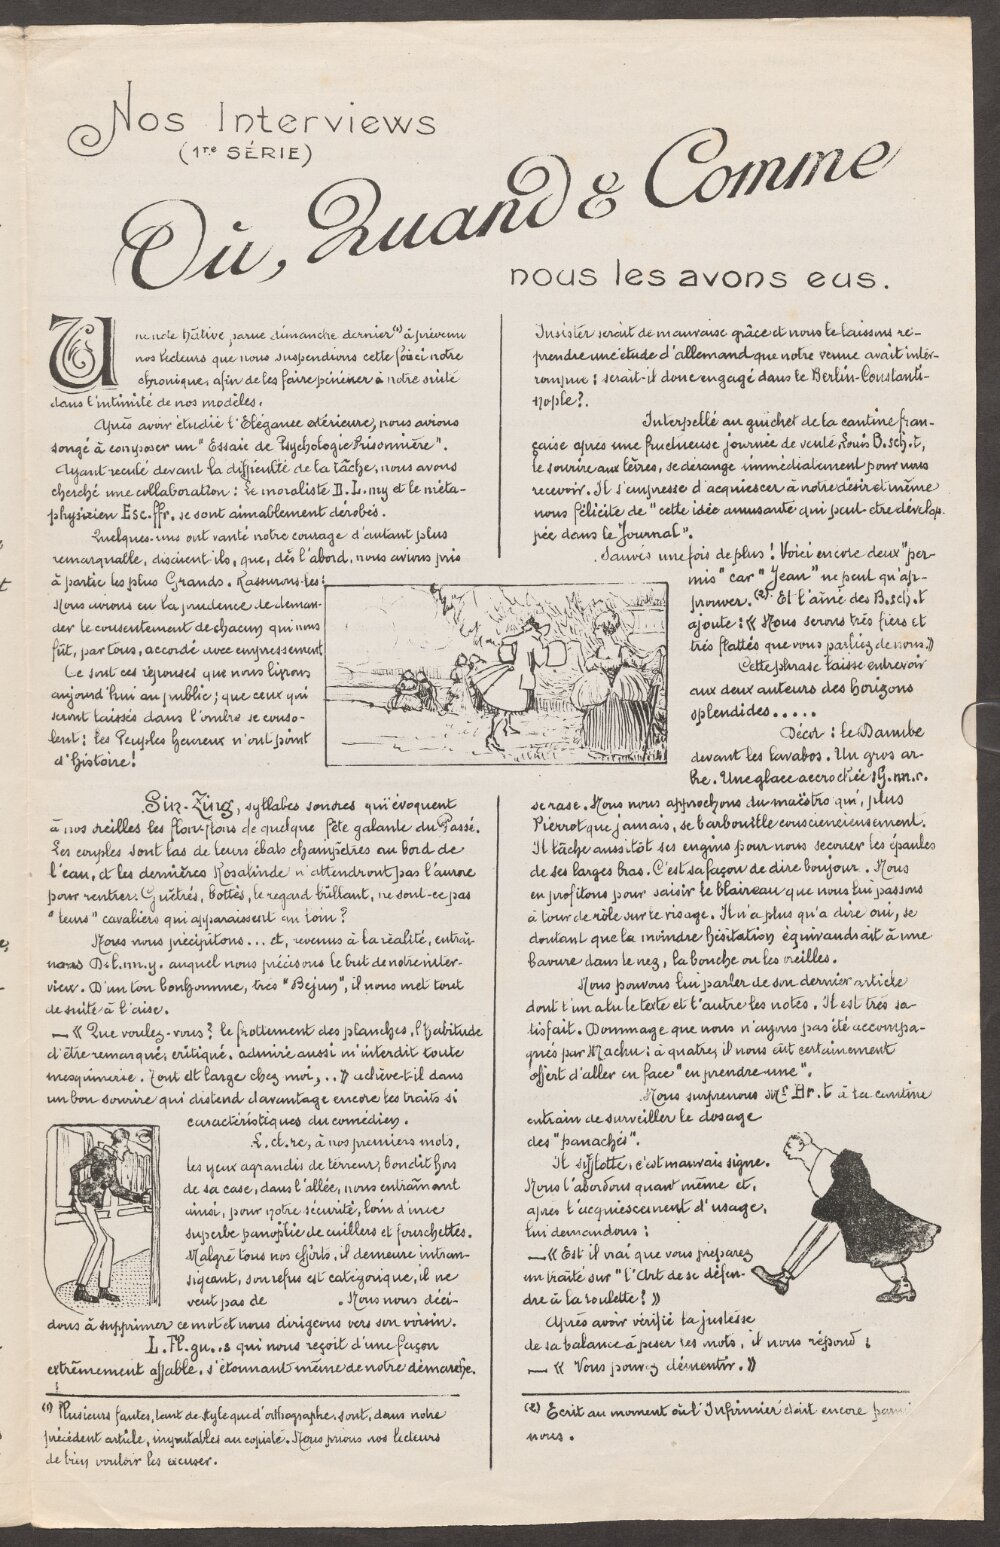 Nos Interviews
(1re SÉRIE)
Où, Quand & Comme
nous les avons eus.
Une note hâtive parue dimanche dernier (1) a prévenu
nos lecteurs que nous suspendions cette fois ci notre
chronique, afin de les faire pénétrer à notre suite
dans l'intimité de nos modèles.
Après avoir étudié l'Elégance extérieure, nous avions
songé à composer un "Essaie de Psychologie Prisonnière".
Ayant reculé devant la difficulté de la tâche, nous avons
cherché une collaboration : le moraliste D.L.my et le méta-
physicien Esc.ffr. se sont aimablement dérobés.
Quelques-uns ont vanté notre courage d'autant plus
remarquable, disaient-ils, que, dès l'abord, nous avions pris
à partie les plus Grands. Rassurons-les :
Nous avions eu la prudence de deman-
der le consentement de chacun qui nous
fût, par tous, accordé avec empressement
Ce sont ces réponses que nous livrons
aujourd'hui au public ; que ceux qui
seront laissés dans l'ombre se conso-
lent : les Peuples heureux n'ont point
d'histoire !
Sin-Zing, syllabes sonores qui évoquent
à nos oreilles les flonflons de quelque fête galante du Passé.
Les couples sont las de leurs ébats champêtres au bord de
l'eau, et les dernières Rosalinde n'attendront pas l'aurore
pour rentrer. Guêtrés, bottés, le regard brillant, ne sont-ce pas
"leurs" cavaliers qui apparaissent au loin ?
Nous nous précipitons... et, revenus à la réalité, entraî-
nons D.l.mn.y. auquel nous précisons le but de notre inter-
view. D'un ton bonhomme, très "Bejun", il nous met tout
de suite à l'aise.
— « Que voulez-vous ? le frottement des planches, l'habitude
d'être remarqué, critiqué, admiré aussi m'interdit toute
mesquinerie. Tout est large chez moi,... » achève-t-il dans
un bon sourire qui distend davantage encore les traits si
caractéristiques du comédien.
L.ct.re, à nos premiers mots,
les yeux agrandis de terreur, bondit hors
de sa case, dans l'allée, nous entraînant
ainsi, pour notre sécurité, loin d'une
superbe panoplie de cuillers et fourchettes.
Malgré tous nos efforts, il demeure intran-
sigeant, son refus est catégorique, il ne
veut pas de . Nous nous déci-
dons à supprimer ce mot et nous dirigeons vers son voisin.
L.Fl.gu..s qui nous reçoit d'une façon
extrêmement affable, s'étonnant même de notre démarche.
(1) Plusieurs fautes, tant de style que d'orthographe, sont, dans notre
précédent article, imputables au copiste. Nous prions nos lecteurs
de bien vouloir les excuser.
Insister serait de mauvaise grâce et nous le laissons re-
prendre une étude d'allemand que notre venue avait inter-
rompue : serait-il donc engagé dans le Berlin-Constanti-
nople ?.
Interpellé au guichet de la cantine fran-
çaise après une fructueuse journée de vente Louis B.sch.t,
le sourire aux lèvres, se dérange immédiatement pour nous
recevoir. Il s'empresse d'acquiescer à notre désir et même
nous félicite de "cette idée amusante qui peut être dévelop-
pée dans le Journal".
Sauvés une fois de plus ! Voici encore deux "per-
mis" car "Jean" ne peut qu'ap-
prouver. (2) Et l'aîné des B.sch.t
ajoute : « Nous serons très fiers et
très flattés que vous parliez de nous. »
Cette phrase laisse entrevoir
aux deux auteurs des horizons
splendides.....
Décor : le Danube
devant les lavabos. Un gros ar-
bre. Une glace accrochée : G.m.r.
se rase. Nous nous approchons du maëstro qui, plus
Pierrot que jamais, se barbouille consciencieusement.
Il lâche aussitôt ses engins pour nous secouer les épaules
de ses larges bras. C'est sa façon de dire bonjour. Nous
en profitons pour saisir le blaireau que nous lui passons
à tour de rôle sur le visage. Il n'a plus qu'a dire oui, se
doutant que la moindre hésitation équivaudrait à une
bavure dans le nez, la bouche ou les oreilles.
Nous pouvons lui parler de son dernier article
dont l'un a lu le texte et l'autre les notes. Il est très sa-
tisfait. Dommage que nous n'ayons pas été accompa-
gnés par Machu : à quatre, il nous eût certainement
offert d'aller en face "en prendre une".
Nous surprenons Mr Br.t à la cantine
entrain de surveiller le dosage
des "panachés".
Il sifflotte, c'est mauvais signe.
Nous l'abordons quant même et,
après l'acquiescement d'usage,
lui demandons :
— « Est il vrai que vous préparez
un traité sur "l'Art de se défen-
dre à la roulette ! »
Après avoir vérifié la justesse
de sa balance à peser les mots, il nous répond :
— « Vous pouvez démentir. »
(2) Ecrit au moment où l'Infirmier était encore parmi
nous.